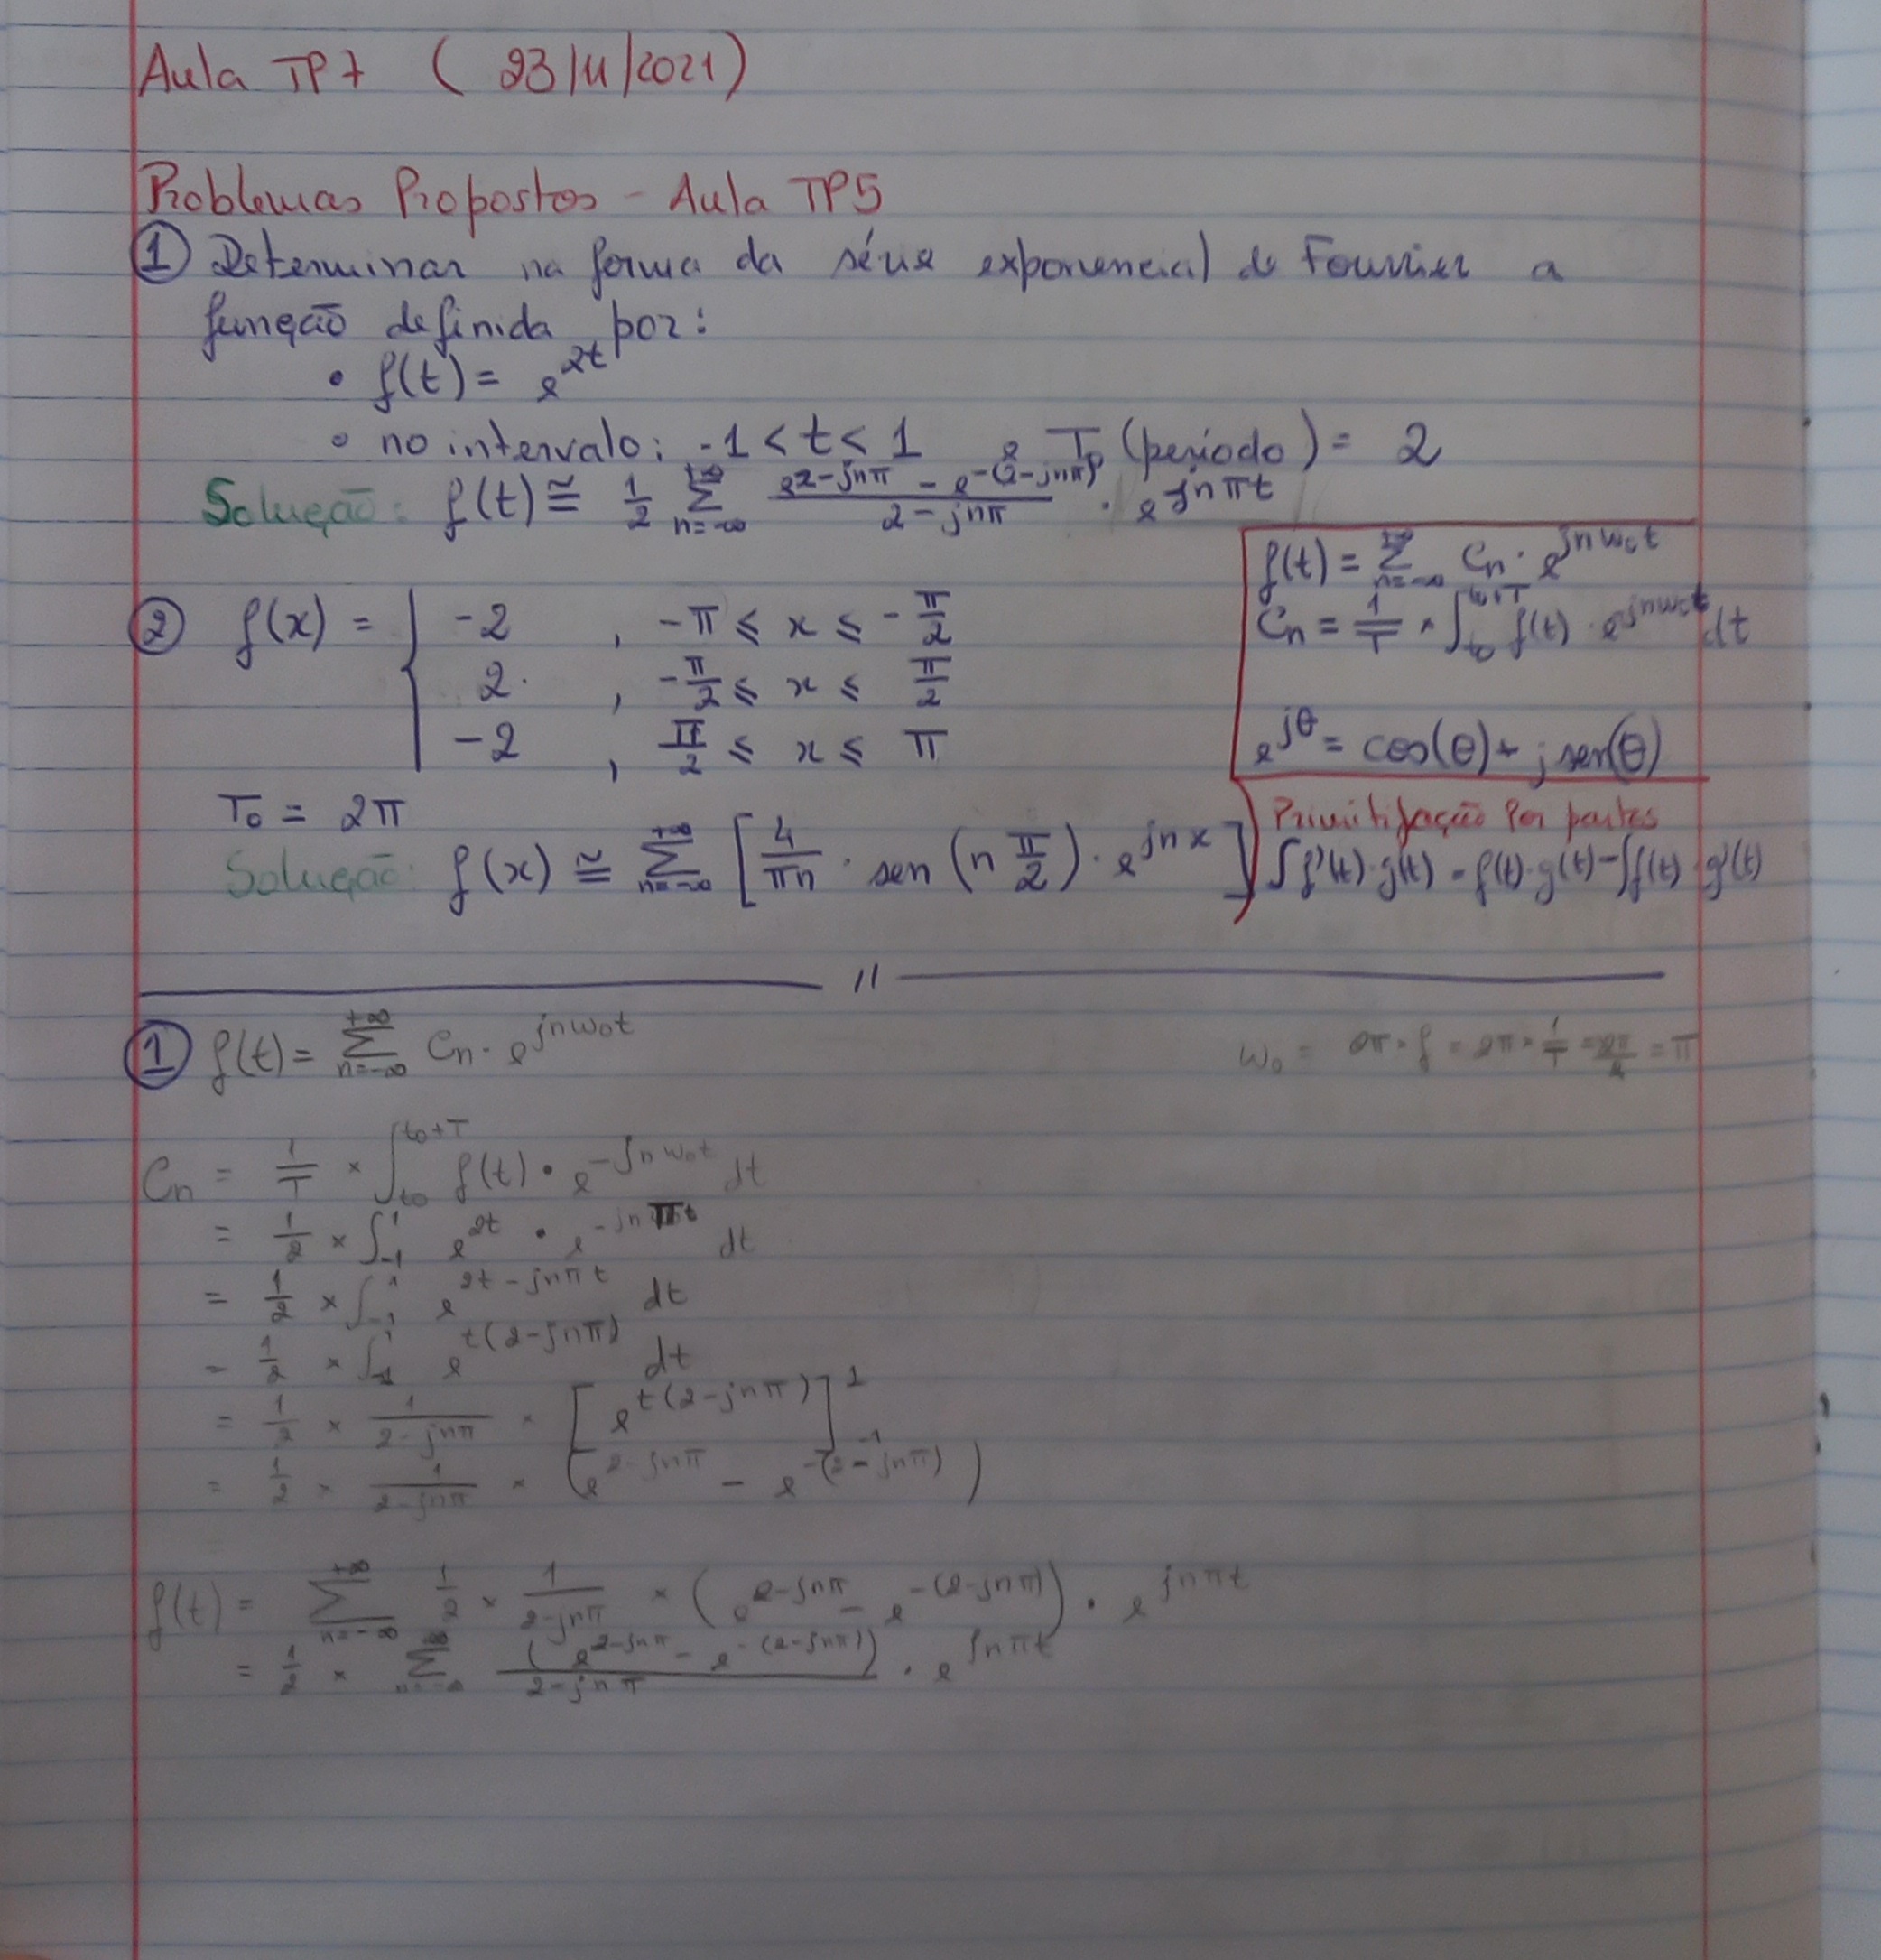 Aula TP7 ( 23/11/2021)
Problemas Propostos - Aula TP5
① Determinar na forma da série exponencial de Fourrier a
função definida por:
• f(t) = e^{2t}
• no intervalo: -1 < t < 1 e T₀ (período) = 2
Solução: f(t) ≅ 1/2 Σ_{n=-∞}^{+∞} (e^{2-jnπ} - e^{-(2-jnπ)})/(2-jnπ) · e^{jnπt}
f(t) = Σ_{n=-∞}^{+∞} Cn · e^{jnw₀t}
Cn = 1/T × ∫_{t0}^{t0+T} f(t) · e^{jnw₀t} dt
e^{jθ} = cos(θ) + j sen(θ)
② f(x) = { -2 , -π ⩽ x ⩽ -π/2
2 , -π/2 ⩽ x ⩽ π/2
-2 , π/2 ⩽ x ⩽ π
T₀ = 2π
Solução: f(x) ≅ Σ_{n=-∞}^{+∞} [4/(πn) · sen (n π/2) · e^{jnx}]
Primitifação por partes
∫f'(t)·g(t) = f(t)·g(t) - ∫f(t)·g'(t)
//
① f(t) = Σ_{n=-∞}^{+∞} Cn · e^{jnw₀t}
w₀ = 2π × f = 2π × 1/T = 2π/2 = π
Cn = 1/T × ∫_{t0}^{t0+T} f(t) • e^{-jnw₀t} dt
= 1/2 × ∫_{-1}^{1} e^{2t} • e^{-jnπt} dt
= 1/2 × ∫_{-1}^{1} e^{2t-jnπt} dt
= 1/2 × ∫_{-1}^{1} e^{t(2-jnπ)} dt
= 1/2 × 1/(2-jnπ) × [e^{t(2-jnπ)}]_{-1}^{1}
= 1/2 × 1/(2-jnπ) × (e^{2-jnπ} - e^{-(2-jnπ)})
f(t) = Σ_{n=-∞}^{+∞} 1/2 × 1/(2-jnπ) × (e^{2-jnπ} - e^{-(2-jnπ)}) • e^{jnπt}
= 1/2 × Σ_{n=-∞}^{+∞} (e^{2-jnπ} - e^{-(2-jnπ)})/(2-jnπ) • e^{jnπt}